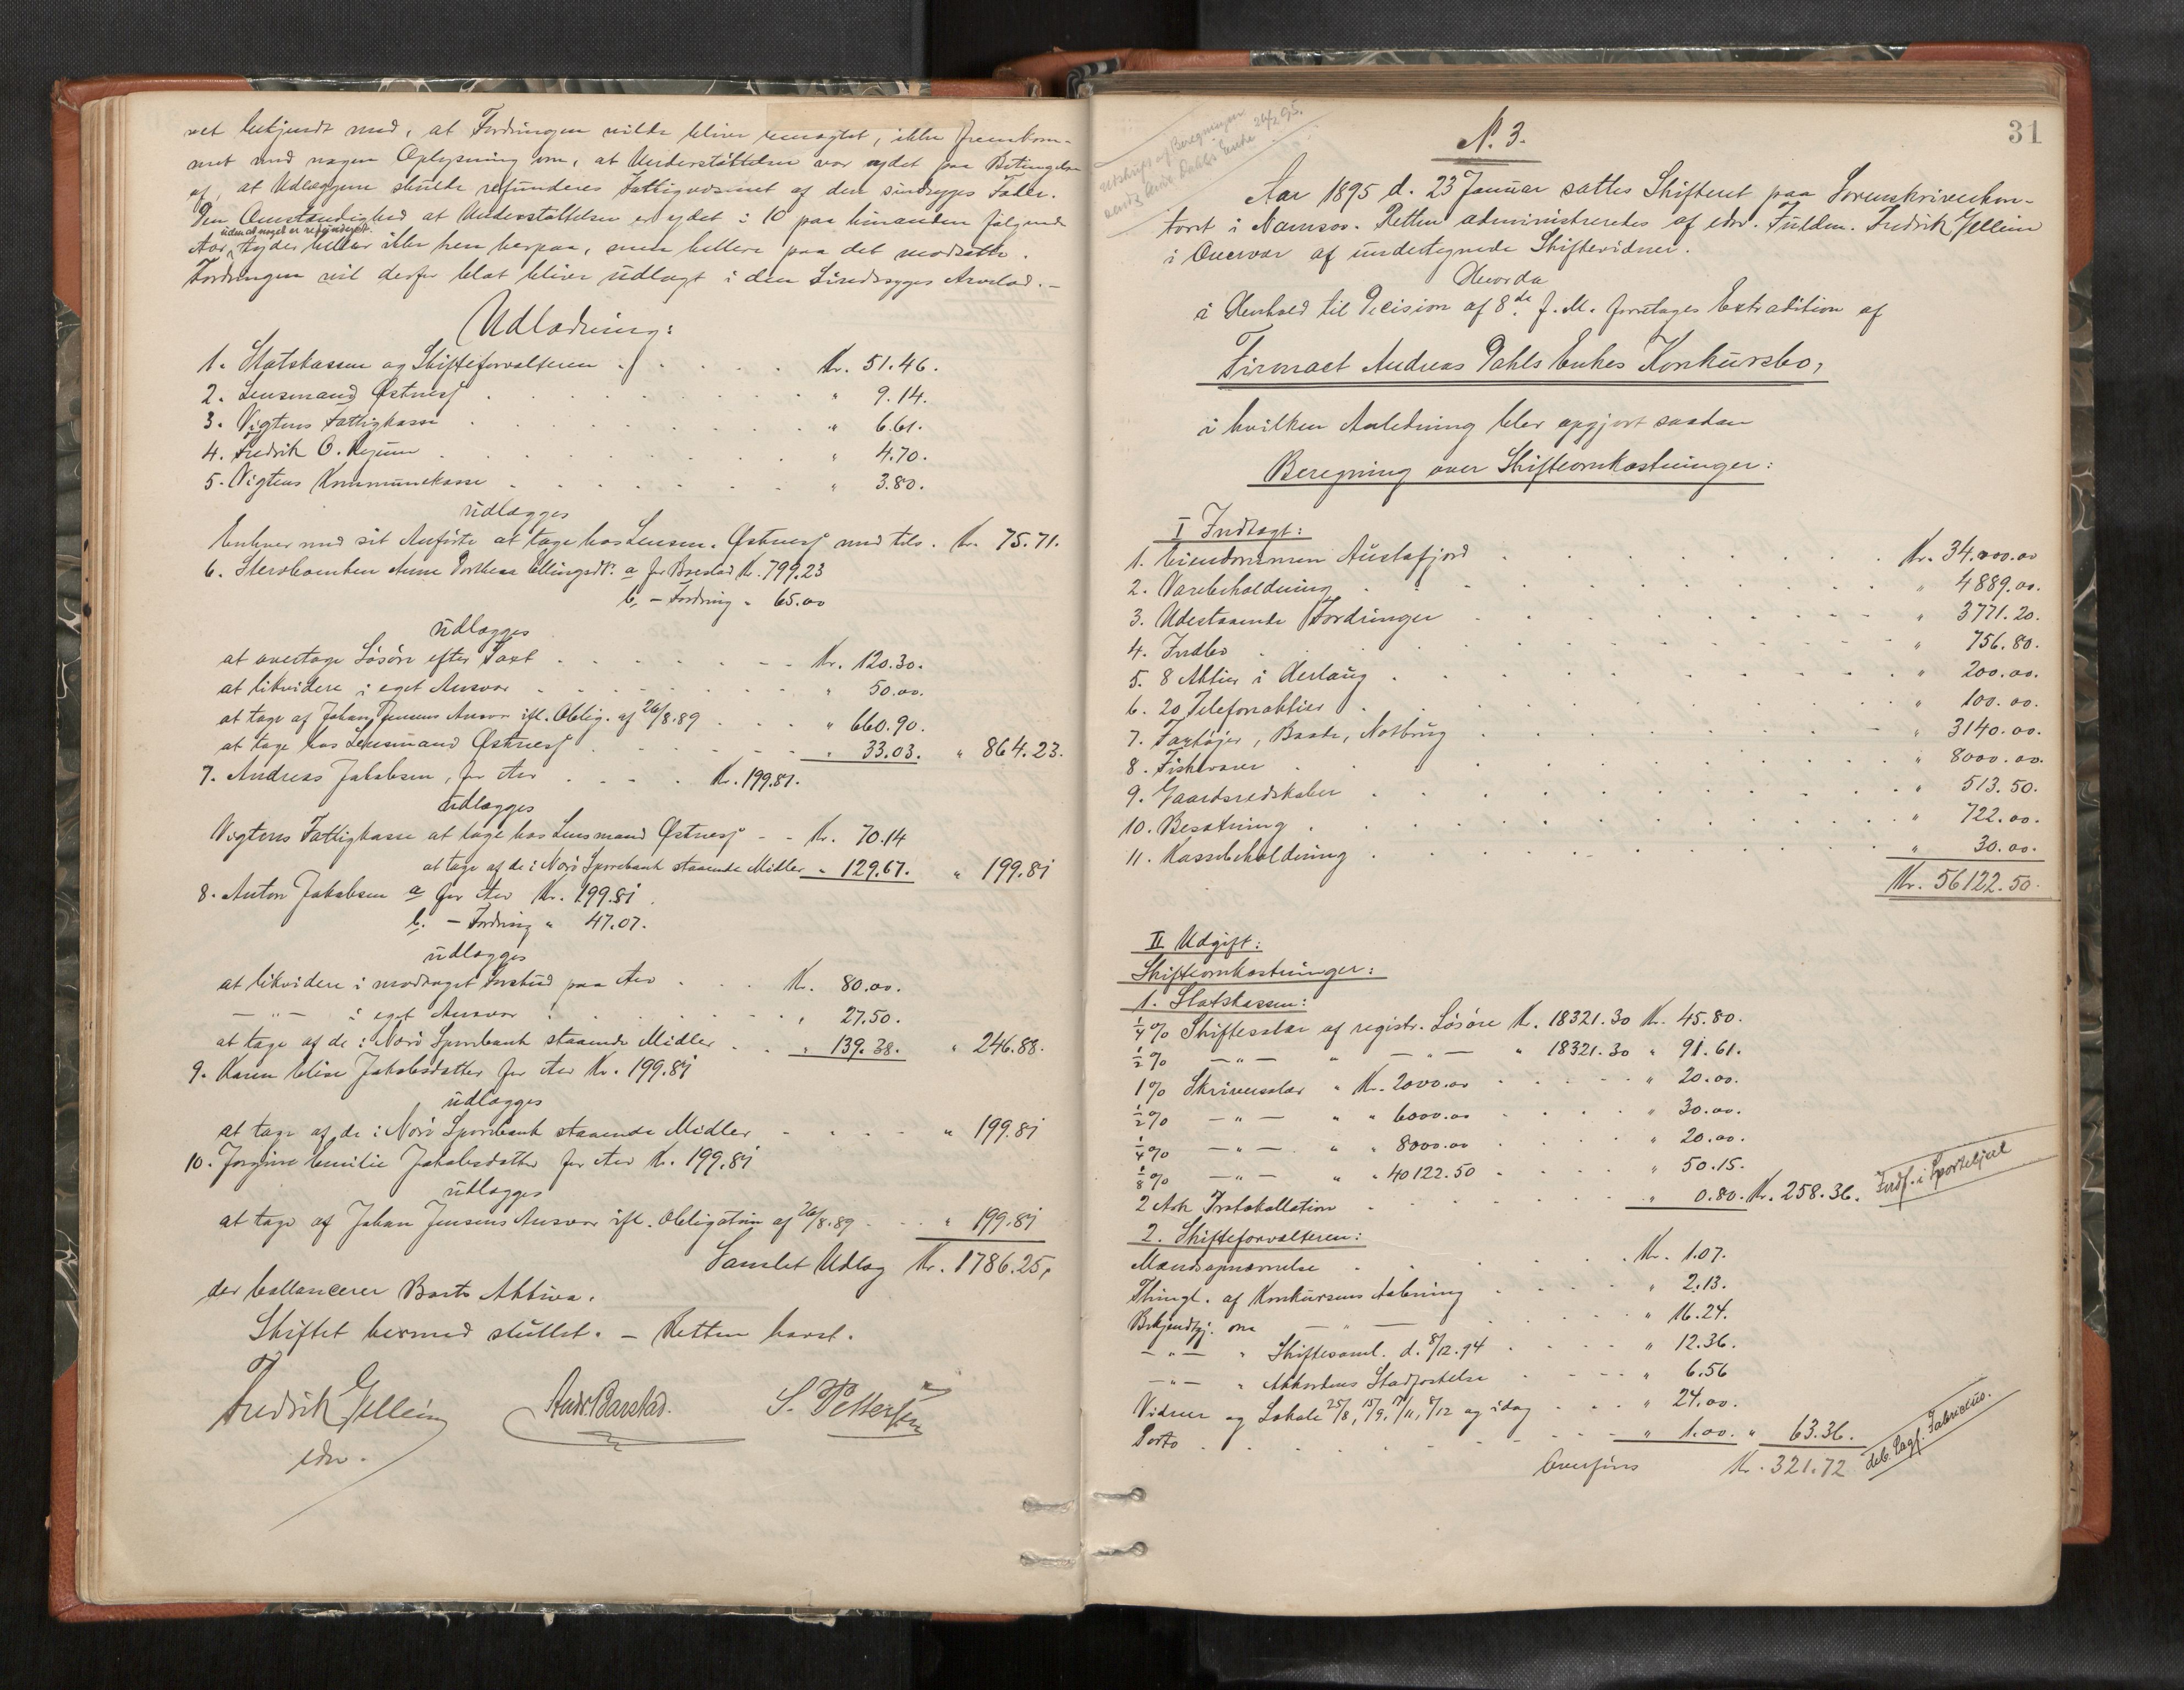 vet bekjendt med, at Fordringen vilde bliver benægtet, ikke fremkom-
met med nogen Oplysning om, at Understøttelsen var ydet paa Betingelse
af, at Udlæggene skulde refunderes Fattigvæsenet af den sindssyges Fader.
Den Omstændighed at Understøttelsen er ydet i 10 paa hinanden følgende
uden at noget er refunderet.
Aar, tyder heller ikke hen herpaa, men hellere paa det modsatte.
Fordringen vil derfor blot bliver udlagt i den Sindssyges Arvelod. -
Udlodning:
1. Statskassen og Skifteforvalteren . . . . . Kr. 51.46.
2. Lensmand Østnesf . . . . . " 9.14.
3. Vigtens Fattigkasse . . . . . " 6.61.
4. Fredrik O. . . . . . " 4.70.
5. Vigtens Kommunekasse . . . . . " 3.80.
udlægges
Enhver med sit Anførte at tage hos Lensm. Østnesf med tils. Kr. 75.71.
6. Sterboenken Anne Ellingsdtr. a for Boeslod Kr. 799.23
b. - Fordring " 65.00
udlægges
at overtage Løsøre efter Taxt . . . . . Kr. 120.30.
at likvidere i eget Ansvar . . . . . " 50.00.
at tage af Johan Jensens Ansvar ifl. Oblig. af 26/8.89 . . . " 660.90.
at tage hos Lensmand Østnesf . . . . . " 33.03. " 864.23.
7. Andreas Jakobsen, for Arv . . . . Kr. 199.81.
udlægges
Vigtens Fattigkasse at tage hos Lensmand Østnesf - - Kr. 70.14
at tage af de i Nærø Sparebank staaende Midler " 129.67. " 199.81
8. Anton Jakobsen a for Arv Kr. 199.81.
b. - Fordring " 47.07.
udlægges
at likvidere i modtaget Forskud paa Arv . . . Kr. 80.00.
- " - i eget Ansvar . . . . . " 27.50.
at tage af de i Nærø Sparebank staaende Midler . . " 139.38. " 246.88.
9. Karen Elise Jakobsdatter for Arv Kr. 199.81
udlægges
at tage af de i Nærø Sparebank staaende Midler - . . - " 199.81
10. Jørgine Emilie Jakobsdatter for Arv Kr. 199.81
udlægges
at tage af Johan Jensens Ansvar ifl. Obligation af 26/8.89 . . . " 199.81
Samlet Udlæg Kr. 1786.25,
der ballancerer Boets Aktiva.
Skiftet hermed sluttet. - Retten hævet.
Fredrik Gellein Andr. Barstad. S. Pettersen
edv.
Utskrift af Beregningen
sendt Dahls Enke 26/2.95.
31
N. 3.
Aar 1895 d. 23 Januar sattes Skifteret paa Sorenskriverkon-
toret i Namsos. Retten administreredes af edsv. Fuldm. Fredrik Gellein
i Overvær af undertegnede Skiftevidner.
Hvorda
i Henhold til Decision af 8de f. M. foretages Extradition af
Firmaet Andreas Dahls Enkes Konkursbo,
i hvilken Anledning blev opgjort saadan
Beregning over Skifteomkostninger:
I Indtægt:
1. Eiendommen Austafjord . . . . . Kr. 34.000.00
2. Varebeholdning . . . . . " 4889.00.
3. Udestaaende Fordringer . . . . . " 3771.20.
4. Indbo . . . . . " 756.80.
5. 8 Aktier i Herlaug . . . . . " 200.00.
6. 20 Telefonaktier . . . . . " 100.00.
7. Fartøjer, Baade, Notbrug . . . . . " 3140.00.
8. Fiskevarer . . . . . " 8000.00.
9. Gaardsredskaber . . . . . " 513.50.
10. Besætning . . . . . " 722.00.
11. Kassebeholdning . . . . . " 30.00.
Kr. 56122.50.
II Udgift:
Skifteomkostninger:
1. Statskassen:
1/4 % Skiftesalær af registr. Løsøre Kr. 18321.30 Kr. 45.80.
1/2 % - " - " - " - " 18321.30 " 91.61.
1 % Skriversalær " Kr. 2000.00 . . . . " 20.00.
1/2 % - " - " " 6000.00 . . . . " 30.00.
1/4 % - " - " " 8000.00 . . . . " 20.00.
1/8 % - " - " " 40122.50 . . . . " 50.15.
2 Ark Protokollation . . . . . " 0.80. Kr. 258.36. Indf. i Sporteljal
2. Skifteforvalteren:
Mændsopnævnelse . . . . . Kr. 1.07.
Thingl. af Konkursens Aabning . . . . " 2.13.
Bekjendtgj. om - " - . . . . " 16.24.
- " - " Skiftesaml. d. 8/12.94 . . . . " 12.36.
- " - " Akkordens Stadfæstelse . . . . " 6.56
Vidner og Lokale 25/8, 15/9, 17/11, 8/12 og idag . . . " 24.00.
Porto . . . . . " 1.00. " 63.36.
Overføres Kr. 321.72 deb. Sagf. Fabricius.